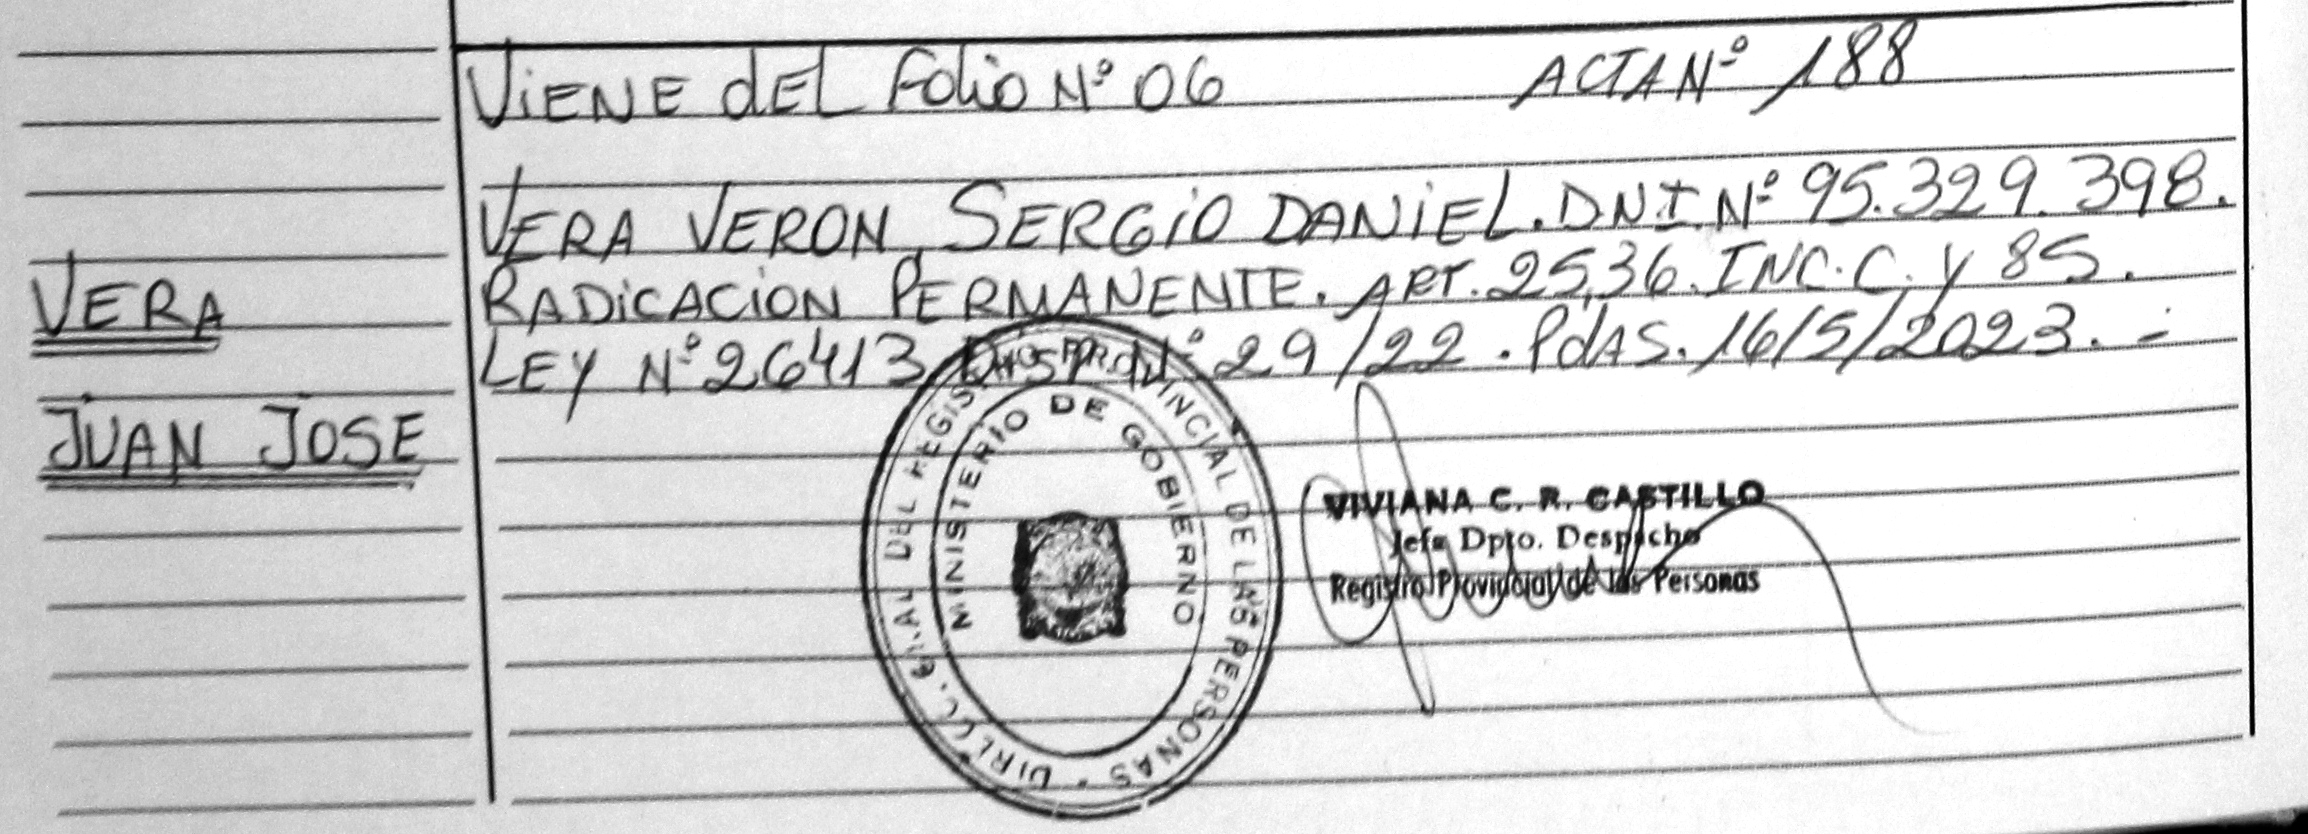 ViENE dEL Folio Nº 06 ACTA Nº 188
VERA VERON, SERGiO DANiEL. D.N.I. Nº 95.329.398.
RADiCACiON PERMANENTE. ART. 25,36. INC. C. y 85.
LEY Nº 26413 DiSP. Nº 29/22. PdAS. 16/5/2023. -
VERA
JUAN JOSE
DIRECC. GRAL DEL REGIST. PROVINCIAL DE LAS PERSONAS
MINISTERIO DE GOBIERNO
VIVIANA C. R. CASTILLO
Jefa Dpto. Despacho
Registro Provincial de las Personas